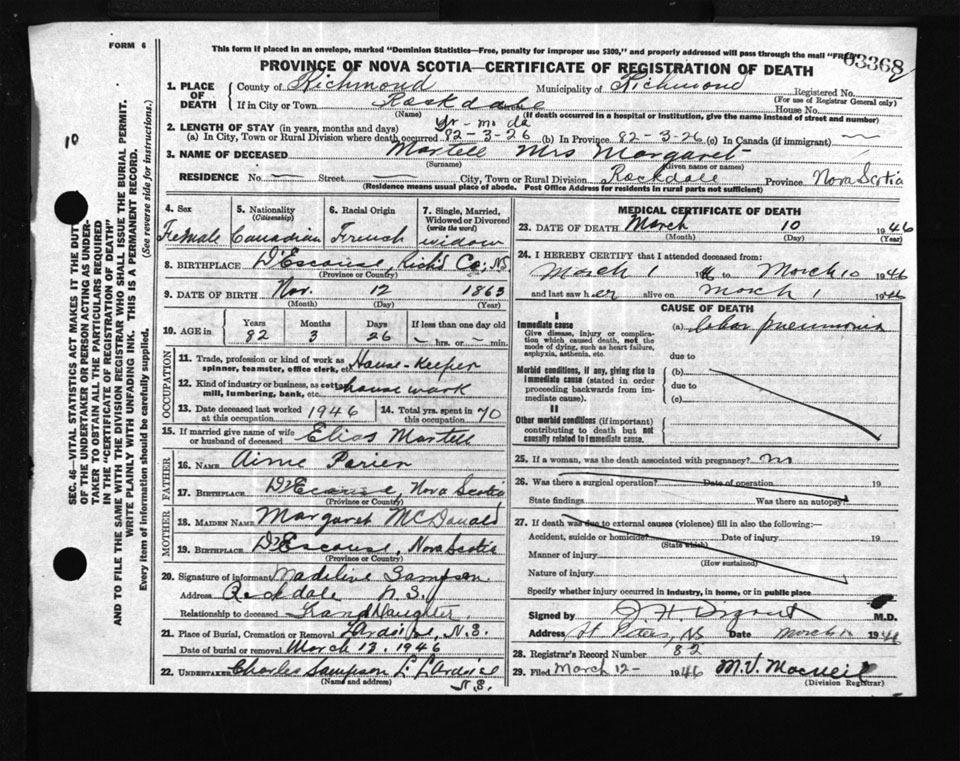 FORM 6
This form if placed in an envelope, marked "Dominion Statistics—Free, penalty for improper use $300," and properly addressed will pass through the mail "FREE"
03368
PROVINCE OF NOVA SCOTIA—CERTIFICATE OF REGISTRATION OF DEATH
10
SEC. 46—VITAL STATISTICS ACT MAKES IT THE DUTY
OF THE UNDERTAKER OR PERSON ACTING AS UNDER-
TAKER TO OBTAIN ALL THE PARTICULARS REQUIRED
IN THE "CERTIFICATE OF REGISTRATION OF DEATH"
AND TO FILE THE SAME WITH THE DIVISION REGISTRAR WHO SHALL ISSUE THE BURIAL PERMIT.
WRITE PLAINLY WITH UNFADING INK. THIS IS A PERMANENT RECORD.
Every item of information should be carefully supplied. (See reverse side for instructions.)
1. PLACE OF DEATH
County of Richmond Municipality of Richmond Registered No.
(For use of Registrar General only)
If in City or Town Rockdale House No.
(Name) (If death occurred in a hospital or institution, give the name instead of street and number)
yr - mo da
2. LENGTH OF STAY (in years, months and days)
(a) In City, Town or Rural Division where death occurred 82-3-26 (b) In Province 82-3-26 (c) In Canada (if immigrant)
3. NAME OF DECEASED Martell Mrs Margaret
(Surname) (Given name or names)
RESIDENCE No. — Street — City, Town or Rural Division Rockdale Province Nova Scotia
(Residence means usual place of abode. Post Office Address for residents in rural parts not sufficient)
4. Sex Female
5. Nationality (Citizenship) Canadian
6. Racial Origin French
7. Single, Married, Widowed or Divorced (write the word) widow
8. BIRTHPLACE D'Escouse, Rich'd Co; N.S
(Province or County)
9. DATE OF BIRTH Nov. 12 1863
(Month) (Day) (Year)
10. AGE in Years 82 Months 3 Days 26 If less than one day old – hrs. or – min.
OCCUPATION
11. Trade, profession or kind of work as spinner, teamster, office clerk, etc. House-Keeper
12. Kind of industry or business, as cotton mill, lumbering, bank, etc. house work
13. Date deceased last worked at this occupation 1946 14. Total yrs. spent in this occupation 70
15. If married give name of wife or husband of deceased Elias Martell
FATHER
16. NAME Aime
17. BIRTHPLACE D'Escouse, Nova Scotia
(Province or County)
MOTHER
18. MAIDEN NAME Margaret McDonald
19. BIRTHPLACE D'Escouse, Nova Scotia
(Province or County)
20. Signature of informant Madeline Sampson
Address Rockdale N.S.
Relationship to deceased Grand Daughter
21. Place of Burial, Cremation or Removal L'Ardoise, N.S.
Date of burial or removal March 13, 1946
22. UNDERTAKER Charles Sampson L. L'Ardoise
(Name and address) N.S.
MEDICAL CERTIFICATE OF DEATH
23. DATE OF DEATH March 10 1946
(Month) (Day) (Year)
24. I HEREBY CERTIFY that I attended deceased from:
March 1 46 to March 10 1946
and last saw her alive on March 1 1946
CAUSE OF DEATH
I
Immediate cause
Give disease, injury or complication which caused death, not the mode of dying, such as heart failure, asphyxia, asthenia, etc.
(a) lobar pneumonia
due to
Morbid conditions, if any, giving rise to immediate cause (stated in order proceeding backwards from immediate cause).
(b)
due to
(c)
II
Other morbid conditions (if important) contributing to death but not causally related to immediate cause.
25. If a woman, was the death associated with pregnancy? no
26. Was there a surgical operation? Date of operation 19
State findings Was there an autopsy?
27. If death was due to external causes (violence) fill in also the following:—
Accident, suicide or homicide? Date of injury 19
(State which)
Manner of injury
(How sustained)
Nature of injury
Specify whether injury occurred in industry, in home, or in public place
Signed by J. H. M.D.
Address St Peters, NS Date March 1946
28. Registrar's Record Number 82
29. Filed March 12- 1946 M.V. MacNeil
(Division Registrar)